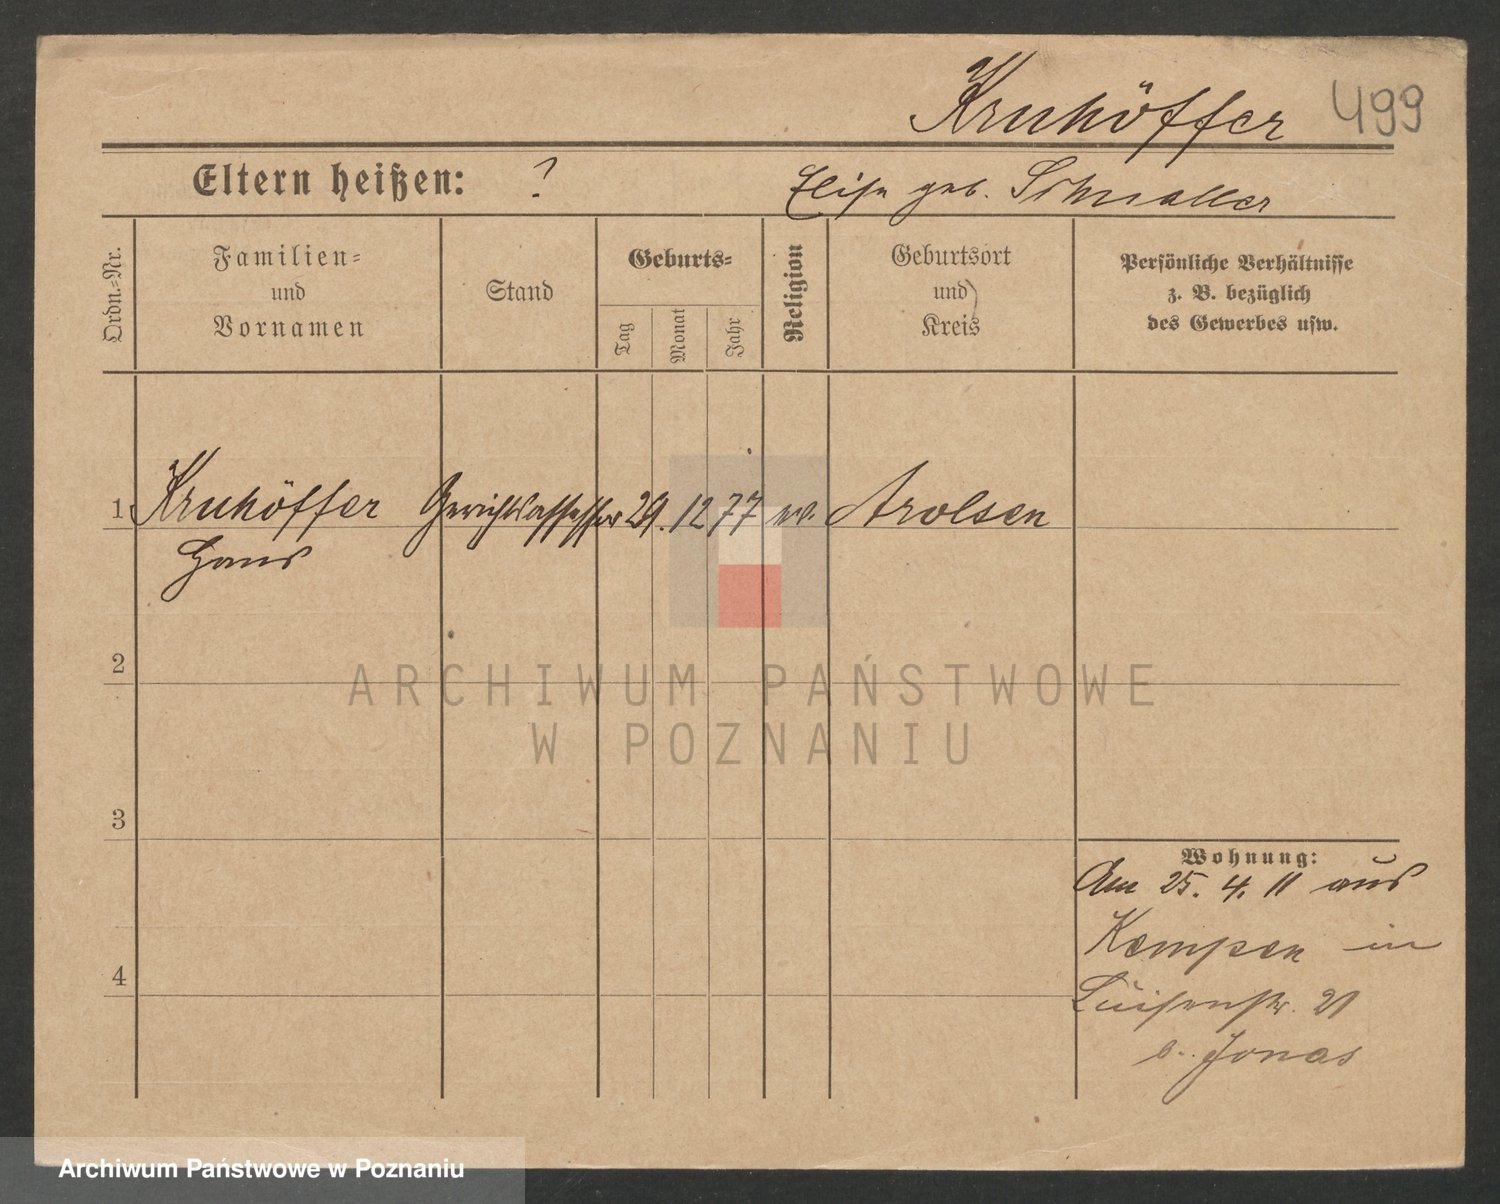 Kruhöffer 499
Eltern heißen: ? Elise geb. Schmaller
Ordn.-Nr.
Familien-
und
Vornamen
Stand
Geburts-
Tag
Monat
Jahr
Religion
Geburtsort
und
Kreis
Persönliche Verhältnisse
z. B. bezüglich
des Gewerbes usw.
1 Kruhöffer Gerichtsassessor 29. 12 77 ev. Arolsen
Hans
2
ARCHIWUM PAŃSTWOWE
W POZNANIU
3
Wohnung:
Am 25. 4. 11 aus
Kempen in
4
Luisenstr. 21
b. Jonas
Archiwum Państwowe w Poznaniu